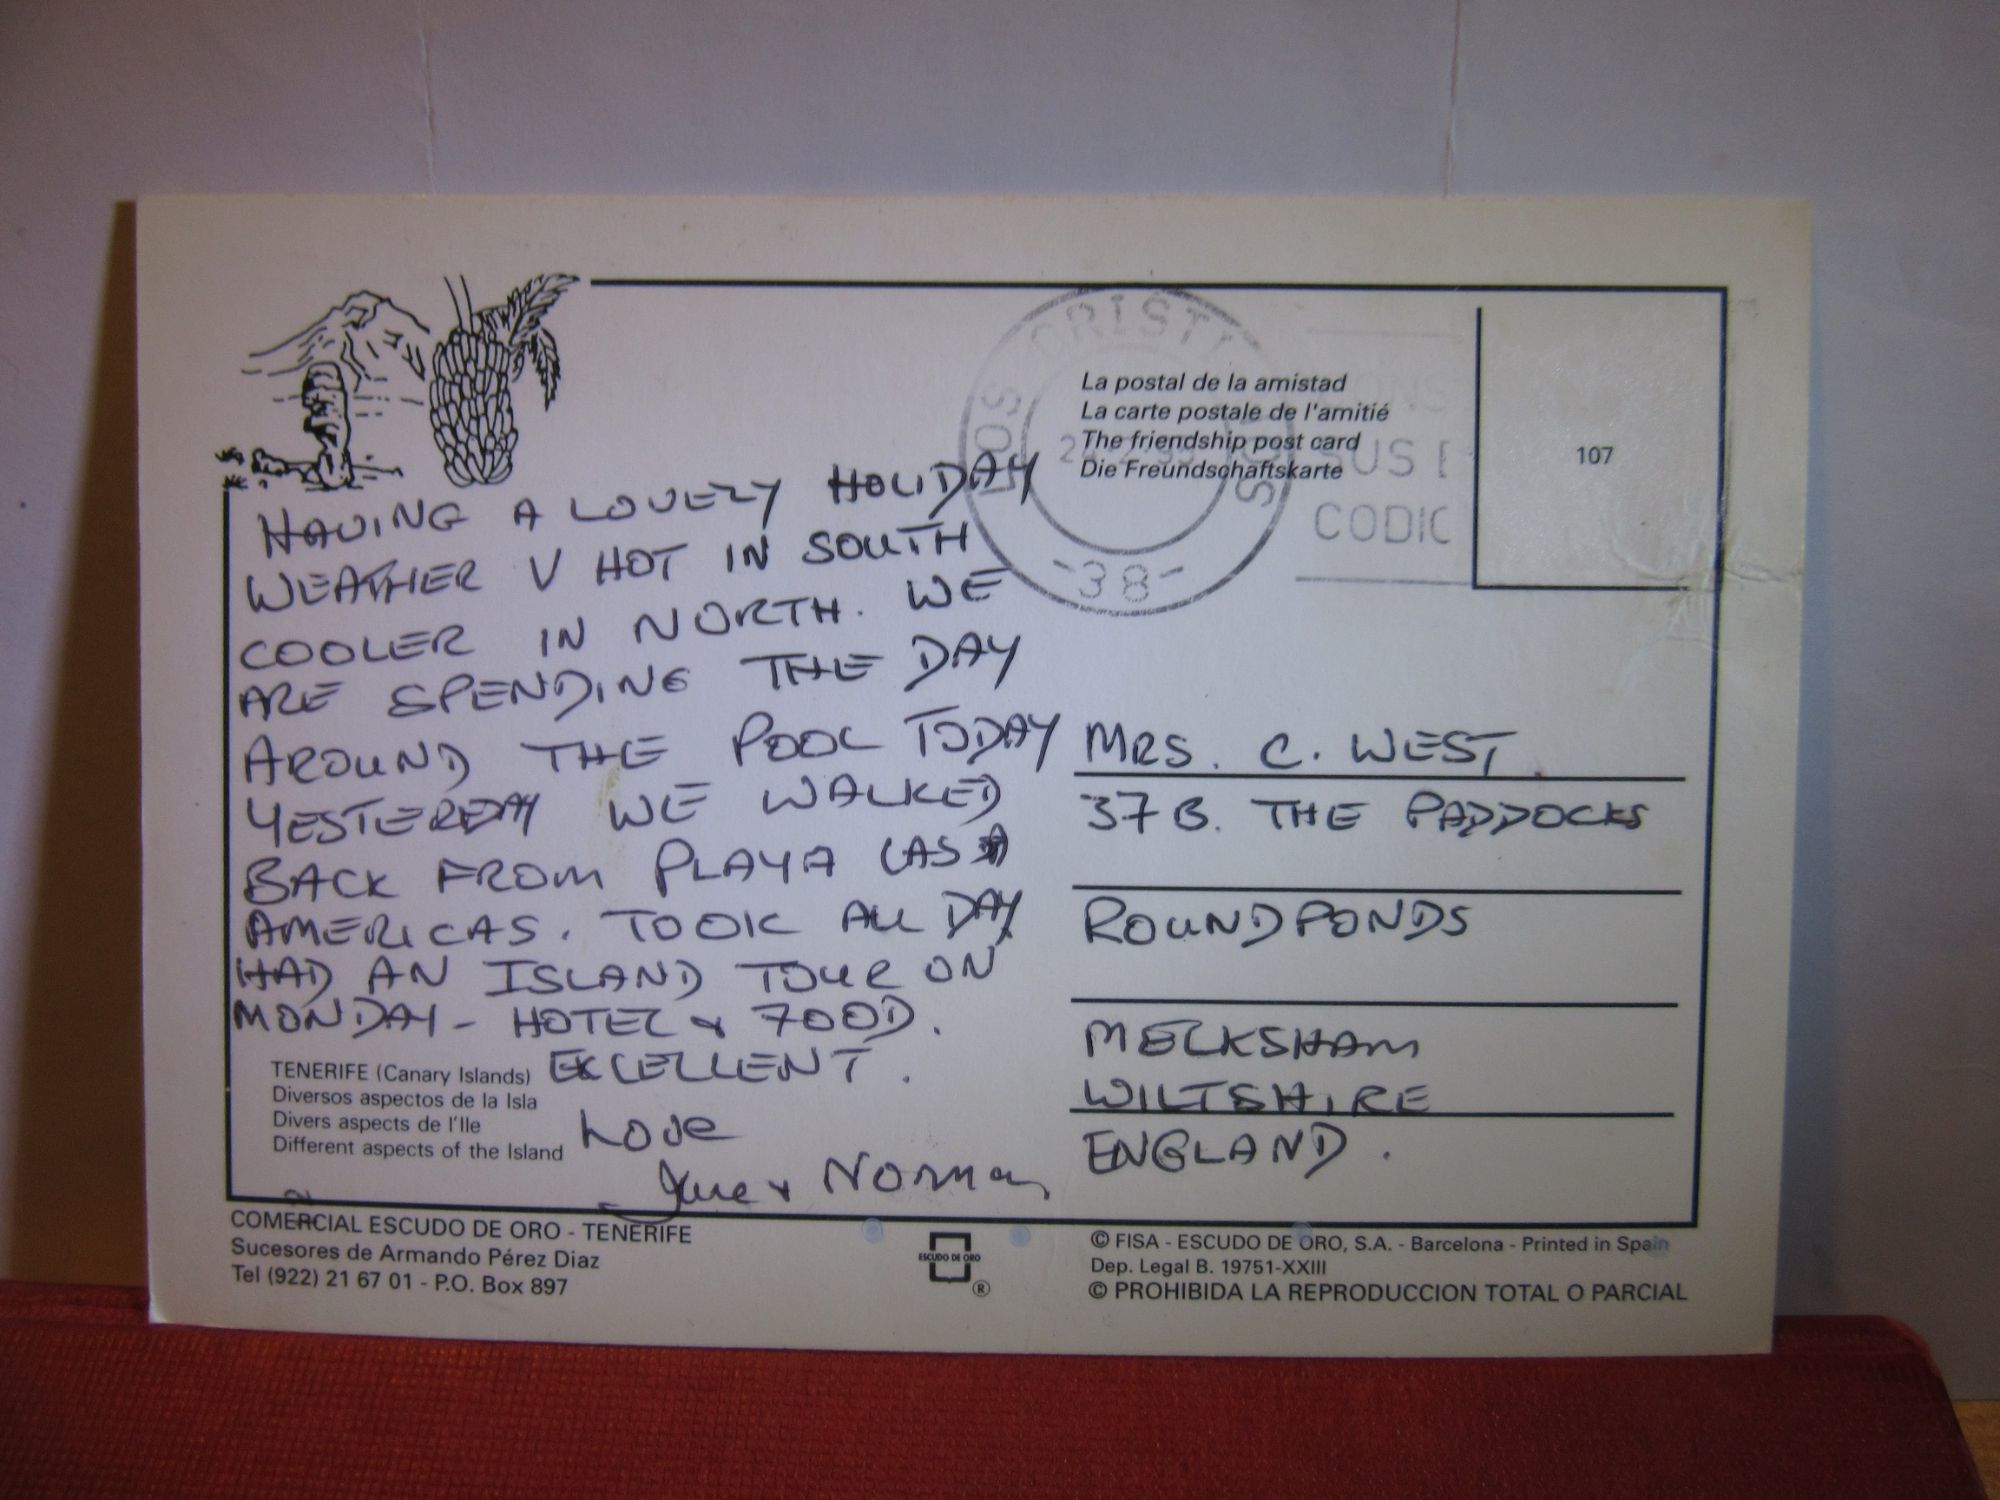 LOS CRISTI
-38-
SUS
CODIC
La postal de la amistad
La carte postale de l'amitié
The friendship post card
Die Freundschaftskarte
107
HAVING A LOVELY HOLIDAY
WEATHER V HOT IN SOUTH
COOLER IN NORTH. WE
ARE SPENDING THE DAY
AROUND THE POOL TODAY
YESTERDAY WE WALKED
BACK FROM PLAYA LAS
AMERICAS. TOOK ALL DAY
HAD AN ISLAND TOUR ON
MONDAY - HOTEL & FOOD.
EXCELLENT.
Love
& Norman
MRS. C. WEST.
37B. THE PADDOCKS
ROUNDPONDS
MELKSHAM
WILTSHIRE
ENGLAND.
TENERIFE (Canary Islands)
Diversos aspectos de la Isla
Divers aspects de l'Ile
Different aspects of the Island
COMERCIAL ESCUDO DE ORO - TENERIFE
Sucesores de Armando Pérez Diaz
Tel (922) 21 67 01 - P.O. Box 897
ESCUDO DE ORO
®
© FISA - ESCUDO DE ORO, S.A. - Barcelona - Printed in Spain
Dep. Legal B. 19751-XXIII
© PROHIBIDA LA REPRODUCCION TOTAL O PARCIAL